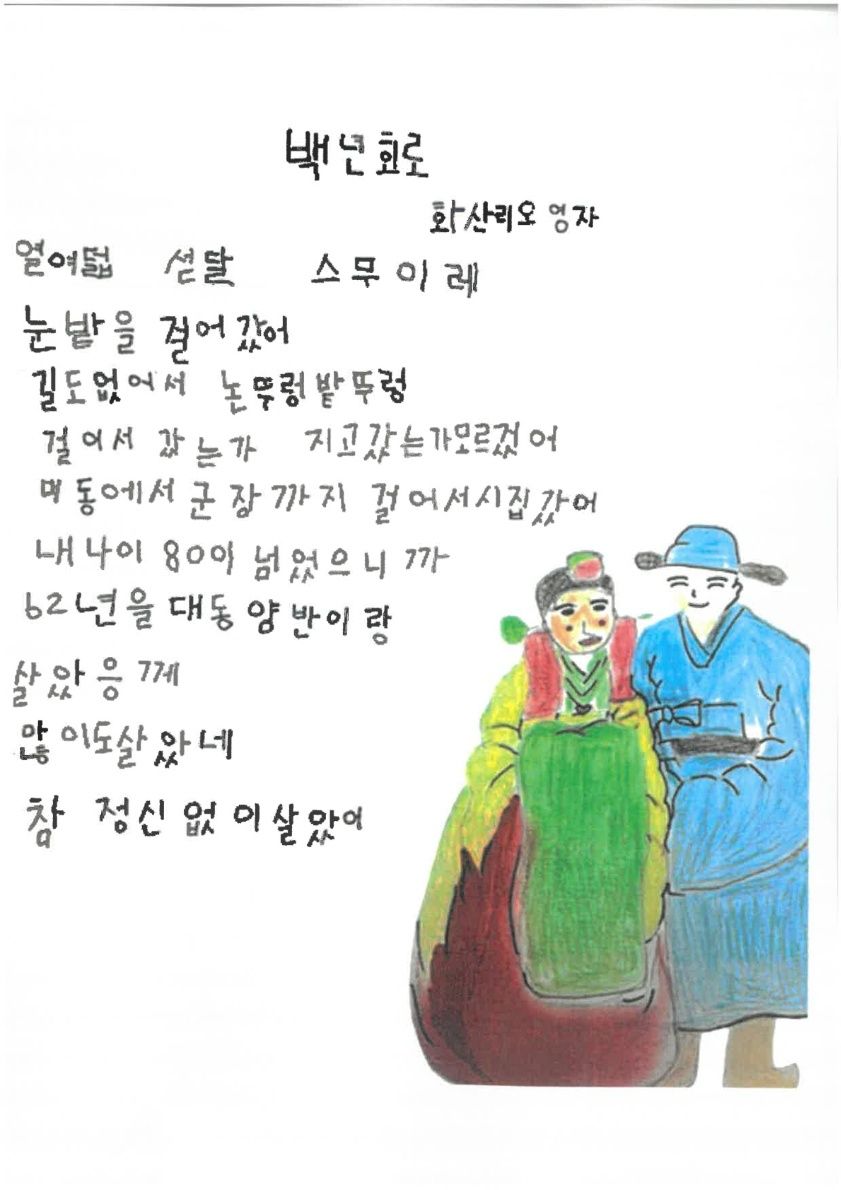 백년회로
화산리오영자
열여덟 섣달 스무이레
눈밭을 걸어갔어
길도없어서 논뚜렁밭뚜렁
걸어서 갔는가 지고갔는가모르겄어
매동에서 군장까지 걸어서시집갔어
내나이 80이 넘었으니까
62년을 대동양반이랑
살았응께
많이도살았네
참 정신없이살았어